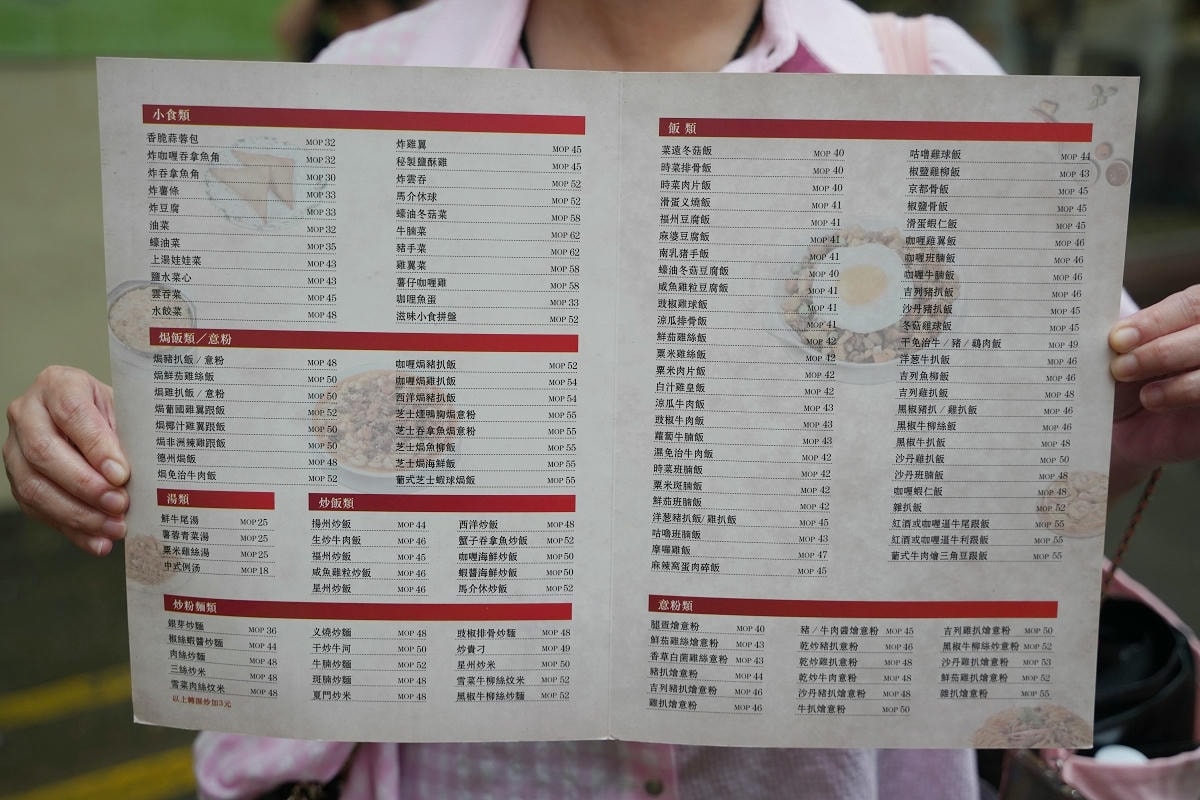 小食類
香脆蒜蓉包 MOP 32
炸咖喱吞拿魚角 MOP 32
炸吞拿魚角 MOP 30
炸薯條 MOP 33
炸豆腐 MOP 33
油菜 MOP 32
蠔油菜 MOP 35
上湯娃娃菜 MOP 43
鹽水菜心 MOP 43
雲吞菜 MOP 45
水餃菜 MOP 48
炸雞翼 MOP 45
秘製鹽酥雞 MOP 45
炸雲吞 MOP 52
馬介休球 MOP 52
蠔油冬菇菜 MOP 58
牛腩菜 MOP 62
豬手菜 MOP 62
雞翼菜 MOP 58
薯仔咖喱雞 MOP 58
咖哩魚蛋 MOP 33
滋味小食拼盤 MOP 52
焗飯類／意粉
焗豬扒飯 / 意粉 MOP 48
焗鮮茄雞絲飯 MOP 50
焗雞扒飯 / 意粉 MOP 52
焗葡國雞翼跟飯 MOP 50
焗椰汁雞翼跟飯 MOP 50
焗非洲辣雞跟飯 MOP 50
德州焗飯 MOP 48
焗免治牛肉飯 MOP 52
咖喱焗豬扒飯 MOP 52
咖喱焗雞扒飯 MOP 54
西洋焗豬扒飯 MOP 54
芝士煙鴨胸焗意粉 MOP 55
芝士吞拿魚焗意粉 MOP 55
芝士焗魚柳飯 MOP 55
芝士焗海鮮飯 MOP 55
葡式芝士蝦球焗飯 MOP 55
湯類
鮮牛尾湯 MOP 25
薯蓉青菜湯 MOP 25
粟米雞絲湯 MOP 25
中式例汤 MOP 18
炒飯類
揚州炒飯 MOP 44
生炒牛肉飯 MOP 46
福州炒飯 MOP 45
咸魚雞粒炒飯 MOP 46
星州炒飯 MOP 46
西洋炒飯 MOP 48
蟹子吞拿魚炒飯 MOP 52
咖喱海鮮炒飯 MOP 50
蝦醬海鮮炒飯 MOP 50
馬介休炒飯 MOP 52
炒粉麵類
銀芽炒麵 MOP 36
椒絲蝦醬炒麵 MOP 44
肉絲炒麵 MOP 48
三絲炒米 MOP 48
雪菜肉絲炆米 MOP 48
以上轉濕炒加3元
义燒炒麵 MOP 48
干炒牛河 MOP 50
牛腩炒麵 MOP 52
斑腩炒麵 MOP 48
夏門炒米 MOP 48
豉椒排骨炒麵 MOP 48
炒貴刁 MOP 49
星州炒米 MOP 50
雪菜牛柳絲炆米 MOP 52
黑椒牛柳絲炒麵 MOP 52
飯類
菜遠冬菇飯 MOP 40
時菜排骨飯 MOP 40
時菜肉片飯 MOP 40
滑蛋义燒飯 MOP 41
福州豆腐飯 MOP 41
麻婆豆腐飯 MOP 41
南乳豬手飯 MOP 41
蠔油冬菇豆腐飯 MOP 40
咸魚雞粒豆腐飯 MOP 41
豉椒雞球飯 MOP 41
涼瓜排骨飯 MOP 41
鮮茄雞絲飯 MOP 42
粟米雞絲飯 MOP 42
粟米肉片飯 MOP 42
白汁雞皇飯 MOP 42
涼瓜牛肉飯 MOP 43
豉椒牛肉飯 MOP 43
蘿蔔牛腩飯 MOP 43
濕免治牛肉飯 MOP 42
時菜班腩飯 MOP 42
粟米斑腩飯 MOP 42
鮮茄班腩飯 MOP 42
洋葱豬扒飯/ 雞扒飯 MOP 45
咕嚕班腩飯 MOP 43
摩囉雞飯 MOP 47
麻辣窩蛋肉碎飯 MOP 45
咕嚕雞球飯 MOP 44
椒鹽雞柳飯 MOP 43
京都骨飯 MOP 45
椒鹽骨飯 MOP 45
滑蛋蝦仁飯 MOP 45
咖喱雞翼飯 MOP 46
咖喱班腩飯 MOP 46
咖喱牛腩飯 MOP 46
吉列豬扒飯 MOP 46
沙丹豬扒飯 MOP 45
冬菇雞球飯 MOP 45
干免治牛 / 豬 / 鷄肉飯 MOP 49
洋葱牛扒飯 MOP 46
吉列魚柳飯 MOP 46
吉列雞扒飯 MOP 48
黑椒豬扒 / 雞扒飯 MOP 46
黑椒牛柳絲飯 MOP 46
黑椒牛扒飯 MOP 48
沙丹雞扒飯 MOP 50
沙丹班腩飯 MOP 48
咖喱蝦仁飯 MOP 48
雜扒飯 MOP 52
紅酒或咖喱逼牛尾跟飯 MOP 55
紅酒或咖喱逼牛利跟飯 MOP 55
葡式牛肉燴三角豆跟飯 MOP 55
意粉類
腿蛋燴意粉 MOP 40
鮮茄雞絲燴意粉 MOP 43
香草白菌雞絲意粉 MOP 43
豬扒燴意粉 MOP 44
吉列豬扒燴意粉 MOP 46
雞扒燴意粉 MOP 46
豬 / 牛肉醬燴意粉 MOP 45
乾炒豬扒意粉 MOP 46
乾炒雞扒意粉 MOP 48
乾炒牛肉意粉 MOP 48
沙丹豬扒燴意粉 MOP 48
牛扒燴意粉 MOP 50
吉列雞扒燴意粉 MOP 50
黑椒牛柳絲炒意粉 MOP 52
沙丹雞扒燴意粉 MOP 53
鮮茄雞扒燴意粉 MOP 52
雜扒燴意粉 MOP 55